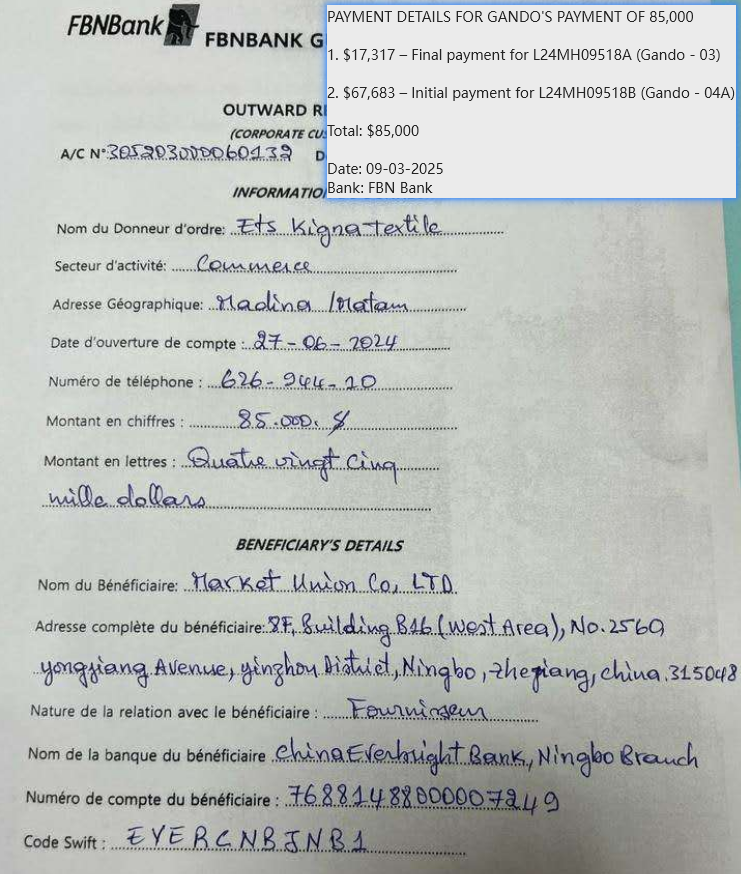 FBNBank FBNBANK G
PAYMENT DETAILS FOR GANDO'S PAYMENT OF 85,000
1. $17,317 – Final payment for L24MH09518A (Gando - 03)
2. $67,683 – Initial payment for L24MH09518B (Gando - 04A)
Total: $85,000
Date: 09-03-2025
Bank: FBN Bank
OUTWARD R
(CORPORATE CU
A/C N° 3052030000060132 D
INFORMATIO
Nom du Donneur d'ordre: Ets Kigna Textile
Secteur d'activité: Commerce
Adresse Géographique: Madina / Matam
Date d'ouverture de compte : 27-06-2024
Numéro de téléphone : 626-944-20
Montant en chiffres : 85.000. $
Montant en lettres : Quatre vingt cinq
mille dollars
BENEFICIARY'S DETAILS
Nom du Bénéficiaire: Market Union Co, LTD.
Adresse complète du bénéficiaire: 8F, Building B16 (West Area), No. 2560
yongjiang Avenue, yinzhou District, Ningbo, zhejiang, china. 315048
Nature de la relation avec le bénéficiaire : Fournisseur
Nom de la banque du bénéficiaire china Everbright Bank, Ningbo Branch
Numéro de compte du bénéficiaire : 76881488000007249
Code Swift : EVERCNBJNB1